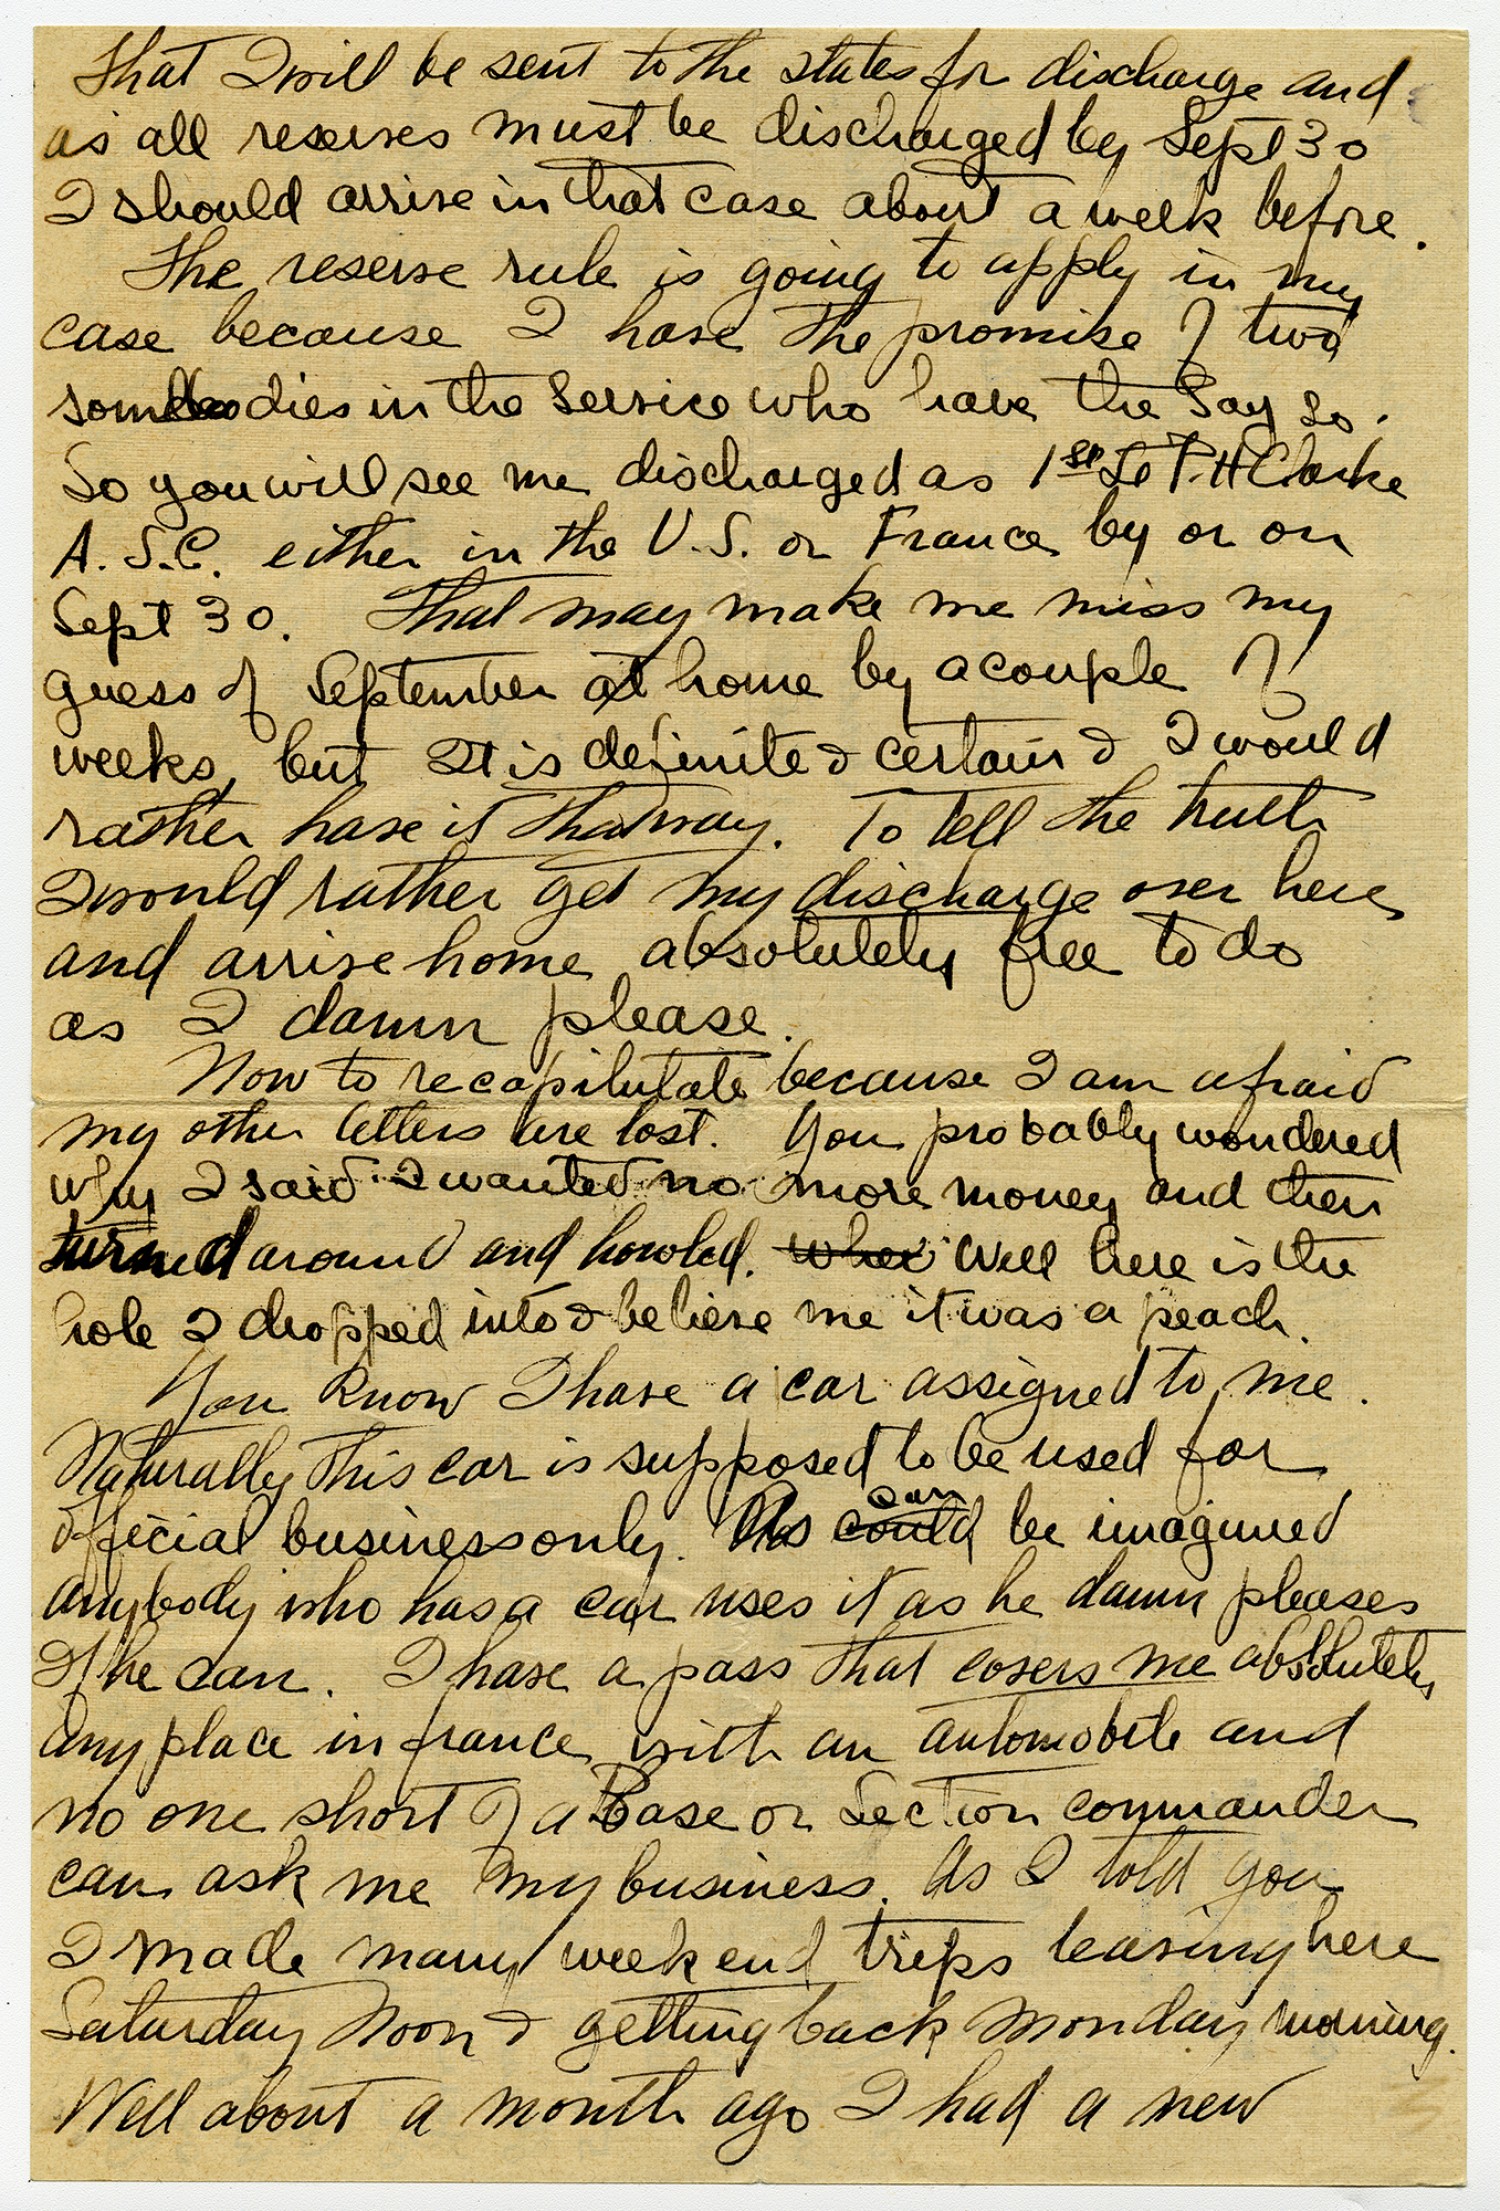 That I will be sent to the states for discharge and
as all reserves must be discharged by Sept 30
I should arrive in that case about a week before.
The reserve rule is going to apply in my
case because I have the promise of two
somebodies in the Service who have the say so.
So you will see me discharged as 1st Lt P. H Clarke
A. S.C. either in the U.S. or France by or on
Sept 30. That may make me miss my
guess of September at home by a couple of
weeks, but It is definite & certain & I would
rather have it that way. To tell the truth
I would rather get my discharge over here
and arrive home absolutely free to do
as I damn please.
Now to recapilutate because I am afraid
my other letters are lost. You probably wondered
why I said I wanted no more money and then
turned around and howled. Well here is the
hole I dropped into & believe me it was a peach.
You know I have a car assigned to me.
Naturally this car is supposed to be used for
official business only. As could can be imagined
anybody who has a car uses it as he damn pleases
If he can. I have a pass that covers me absolutely
any place in france with an automobile and
no one short of a Base or Section commander
can ask me my business. As I told you
I made many week end trips leaving here
Saturday Noon & getting back Monday morning.
Well about a month ago I had a new